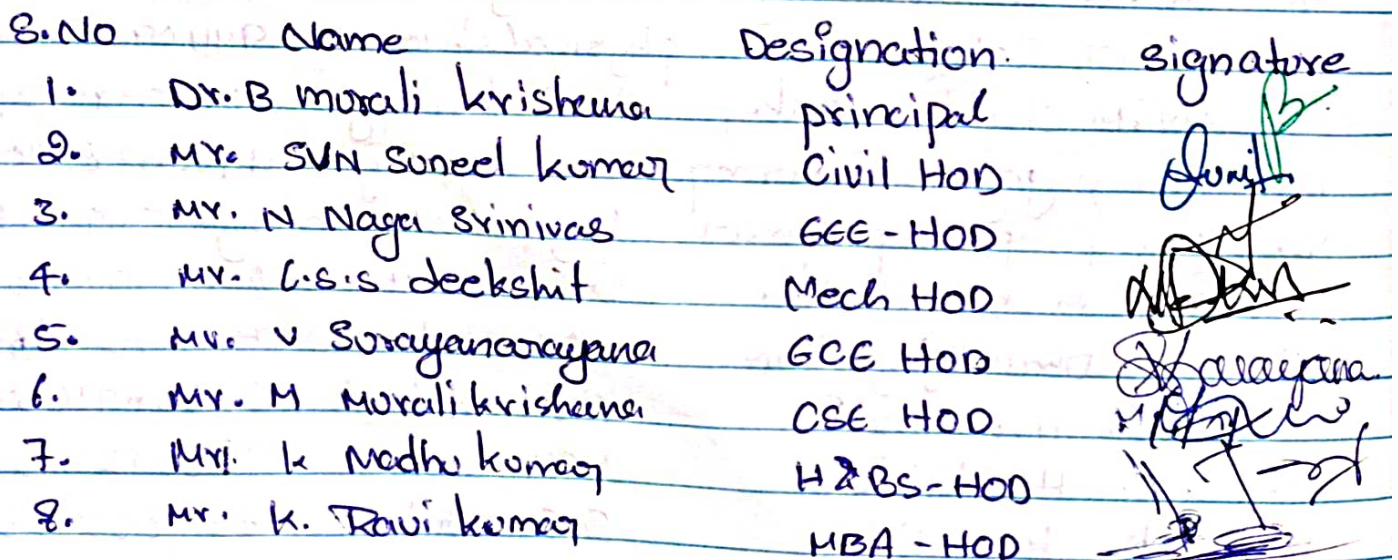 S.No Name Designation signature
1. Dr. B murali krishana principal
2. Mr. SVN Suneel kumar Civil HOD
3. Mr. N Naga Srinivas EEE - HOD
4. Mr. C.S.S deekshit Mech HOD
5. Mr. V Surayanarayana ECE HOD
6. Mr. M Muralikrishana CSE HOD
7. Mr. K Madhu kumar H&BS-HOD
8. Mr. K. Ravi kumar MBA - HOD